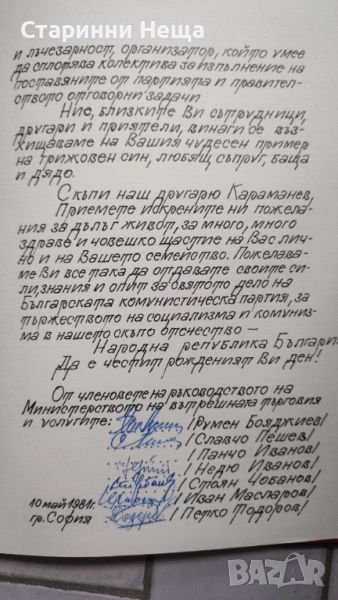 Старинни Неща
и лъчезарност, организатор, който умее
да сплотява колектива за изпълнение на
поставяните от партията и правител-
ството отговорни задачи
Ние, близките Ви сътрудници,
другари и приятели, винаги се въз-
хищаваме на Вашия чудесен пример
на грижовен син, любящ съпруг, баща
и дядо.
Скъпи наш другарю Караманев,
Приемете искрените ни пожела-
ния за дълъг живот, за много, много
здраве и човешко щастие на Вас лич-
но и на Вашето семейство. Пожелава-
ме Ви все така да отдавате своите си-
ли, знания и опит за святото дело на
Българската комунистическа партия, за
тържеството на социализма и комуниз-
ма в нашето скъпо отечество –
Народна република България
Да е честит рожденият Ви ден!
От членовете на ръководството на
Министерството на вътрешната търговия
и услугите:
/Румен Бояджиев/
/Славчо Пешев/
/Панчо Иванов/
/Недю Иванов/
/Стоян Чобанов/
10 май 1981 г. /Иван Масларов/
гр. София /Петко Тодоров/
bazar.bg